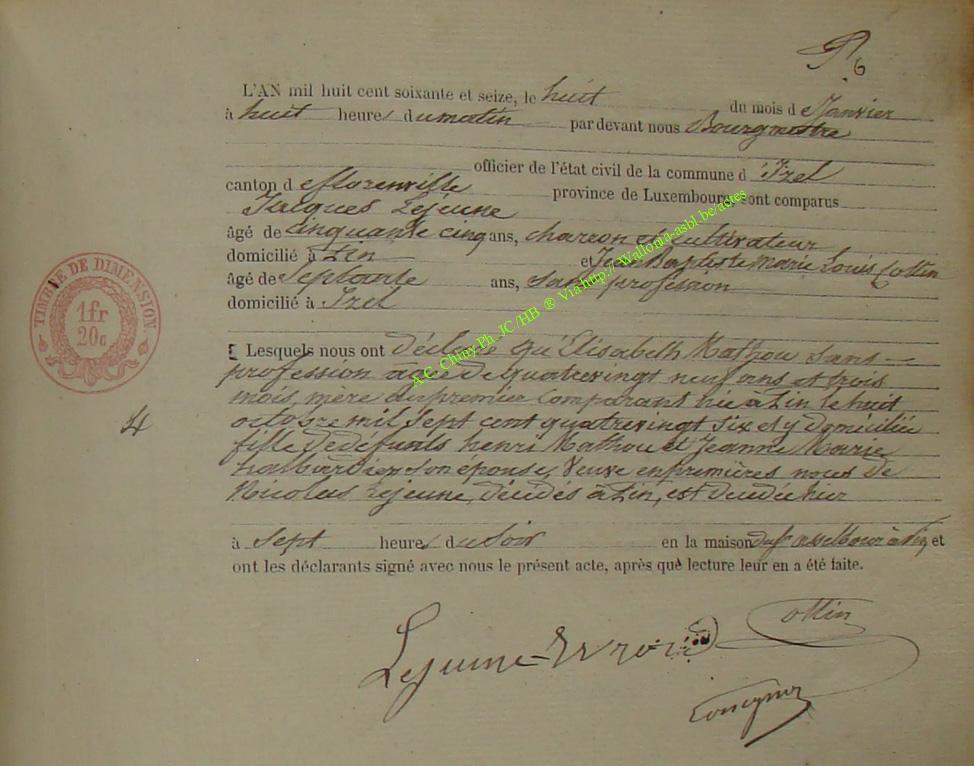 6
L'AN mil huit cent soixante et seize, le huit du mois de Janvier
à huit heures du matin par devant nous Bourgmestre
officier de l'état civil de la commune d'Izel
canton de florenville province de Luxembourg sont comparus
Jacques Lejeune
âgé de cinquante cinq ans, charron et cultivateur
domicilié à Pin et Jean Baptiste Marie Louis Collin
âgé de Septante ans, sans profession
domicilié à Izel
Lesquels nous ont déclaré qu'Elisabeth Mathou sans
profession agée de quatrevingt neuf ans et trois
mois, mère du premier comparant née à Pin le huit
octobre mil sept cent quatrevingt six et y domiciliée
fille de défunts henri Mathou et Jeanne Marie
halbardier son épouse, Veuve en premières noces de
Nicolas Lejeune, décédés à Pin, est décédée hier
à Sept heures du Soir en la maison à Pin et
ont les déclarants signé avec nous le présent acte, après que lecture leur en a été faite.
4
TIMBRE DE DIMENSION
1fr
20c
A.C. Chiny Ph. JC/HB ® Via http://Wallonia-asbl.be/actes
Lejeune
Collin